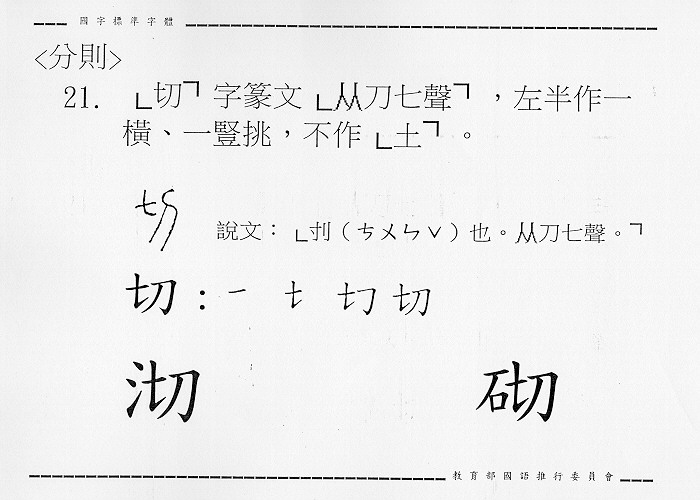 國字標準字體
<分則>
21. ㄴ切ㄱ字篆文ㄴ从刀七聲ㄱ，左半作一
橫、一豎挑，不作ㄴ土ㄱ。
說文：ㄴ刌（ㄘㄨㄣˇ）也。从刀七聲。ㄱ
切：一 切
沏 砌
教育部國語推行委員會